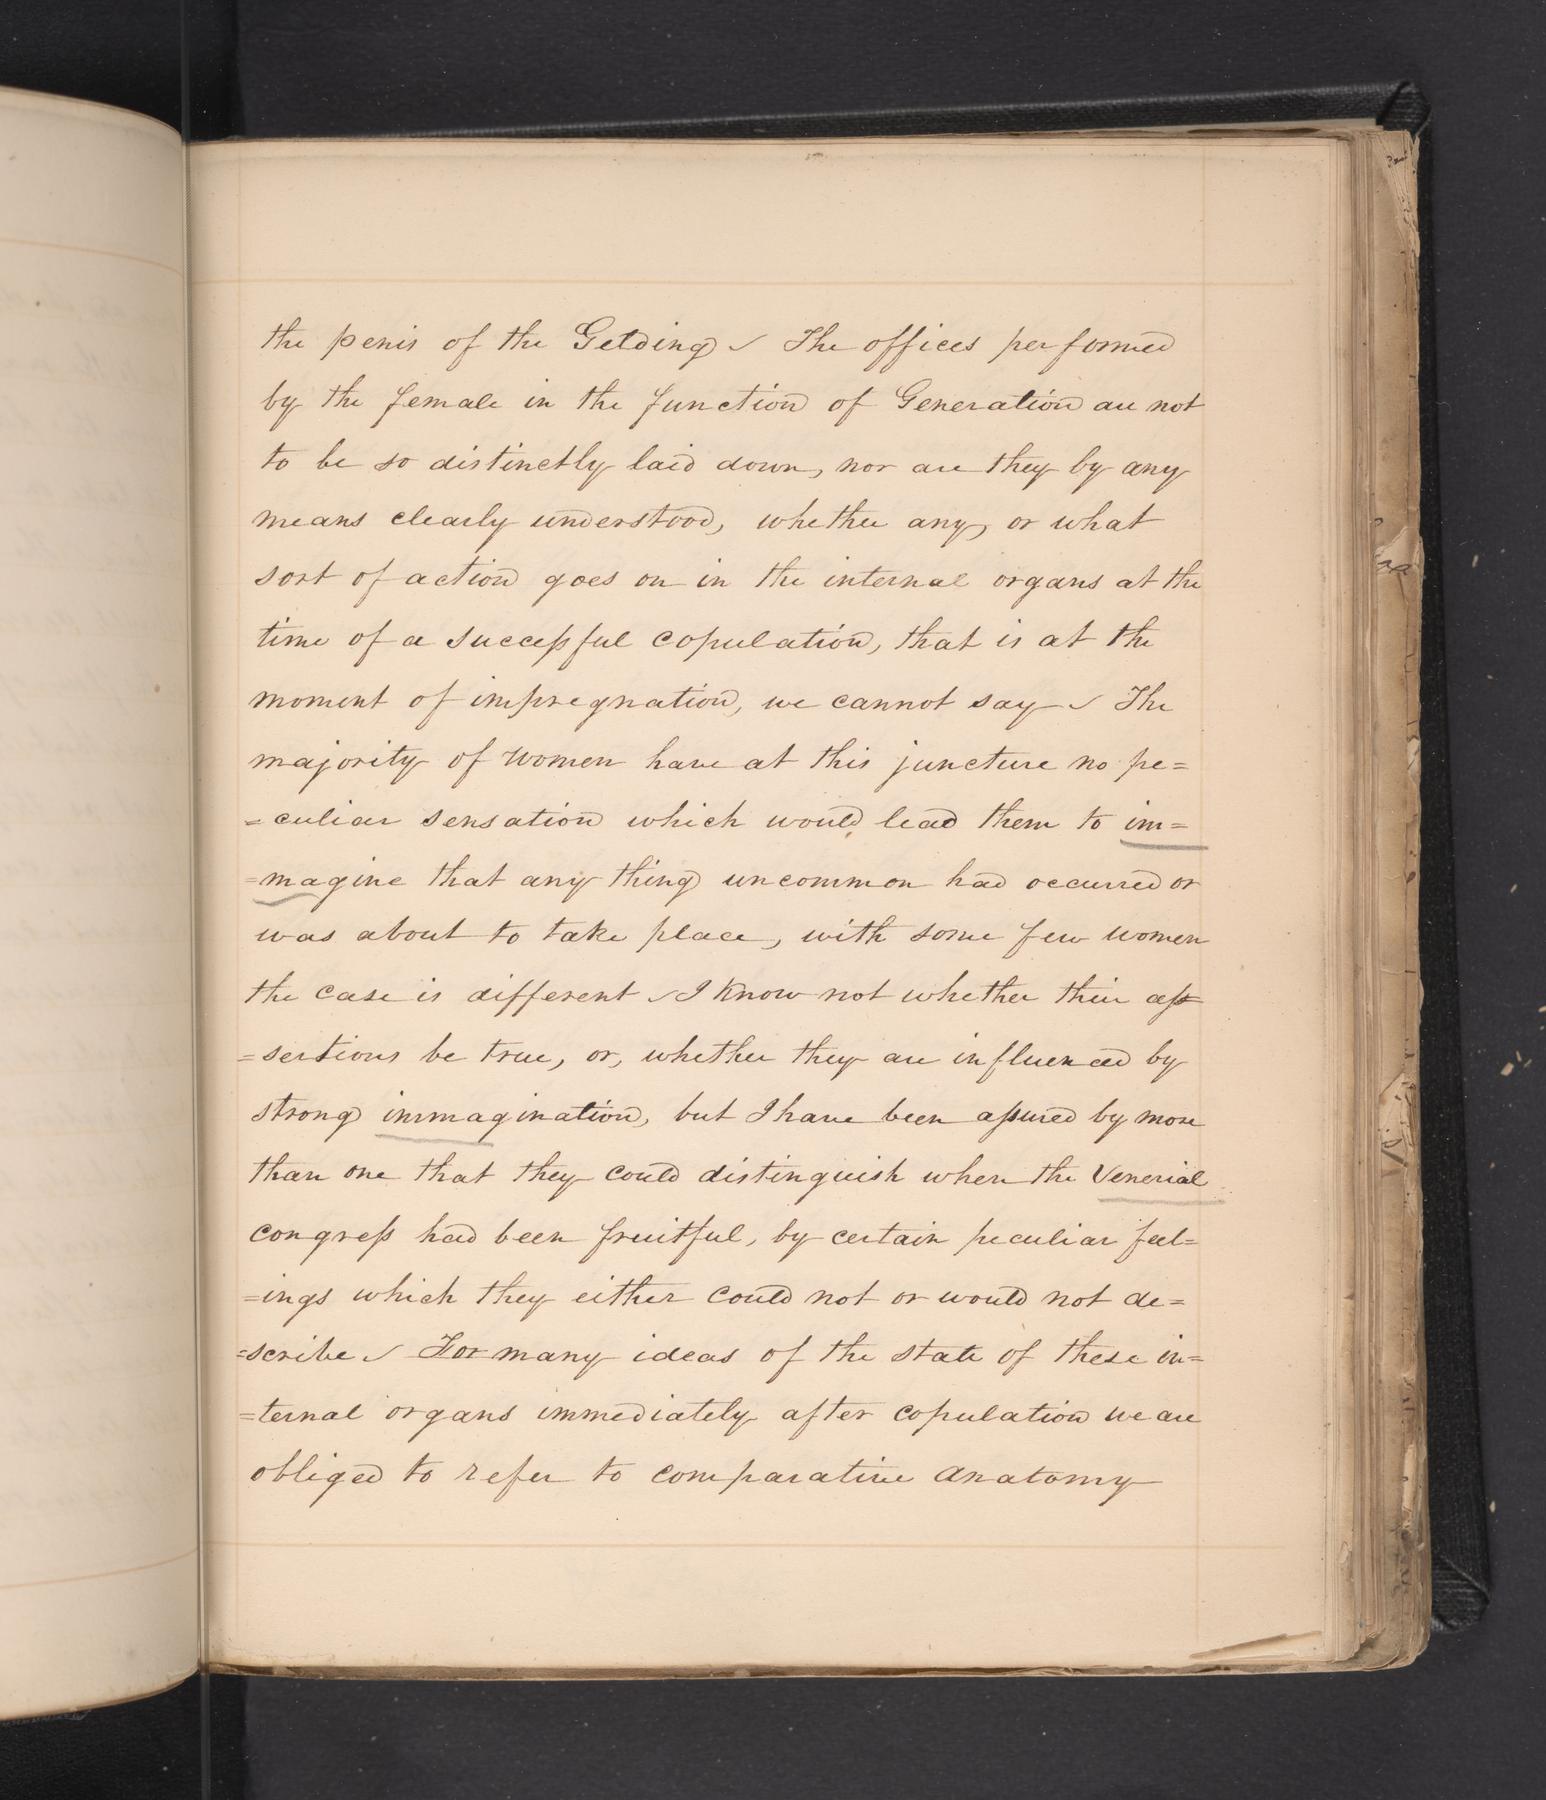 the penis of the Gelding ~ The offices performed
by the female in the function of Generation are not
to be so distinctly laid down, nor are they by any
means clearly understood, whether any, or what
sort of action goes on in the internal organs at the
time of a successful copulation, that is at the
moment of impregnation, we cannot say ~ The
majority of women have at this juncture no pe=
=culiar sensation which would lead them to im=
=magine that any thing uncommon had occurred or
was about to take place, with some few women
the case is different ~ I know not whether their as=
=sertions be true, or, whether they are influenced by
strong immagination, but I have been assured by more
than one that they could distinguish when the Venerial
congress had been fruitful, by certain peculiar feel=
=ings which they either could not or would not de=
=scribe ~ For many ideas of the state of these in=
=ternal organs immediately after copulation we are
obliged to refer to comparative anatomy